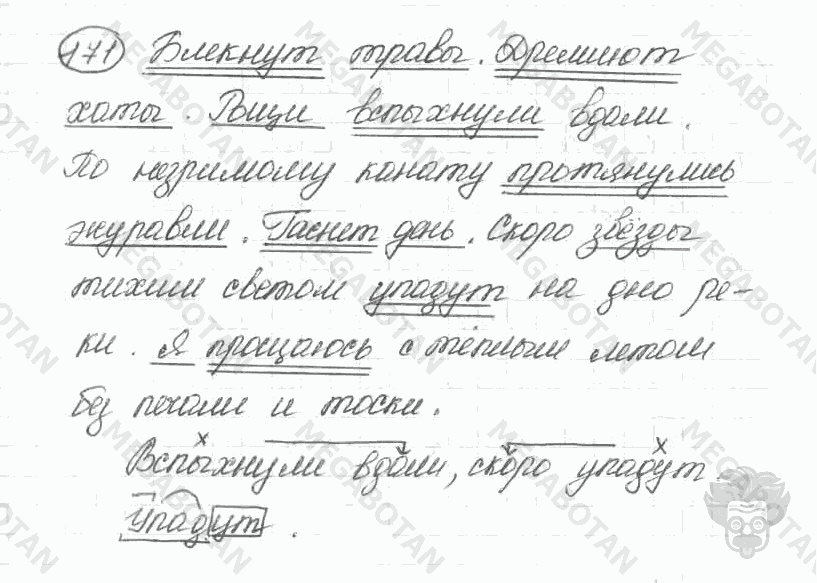 171 Блекнут травы. Дремлют
хаты. Рощи вспыхнули вдали.
По незримому канату протянулись
журавли. Гаснет день. Скоро звёзды
тихим светом упадут на дно ре-
ки. Я прощаюсь с тёплым летом
без печали и тоски.
Вспыхнули вдали, скоро упадут.
Упадут.
MEGABOTAN